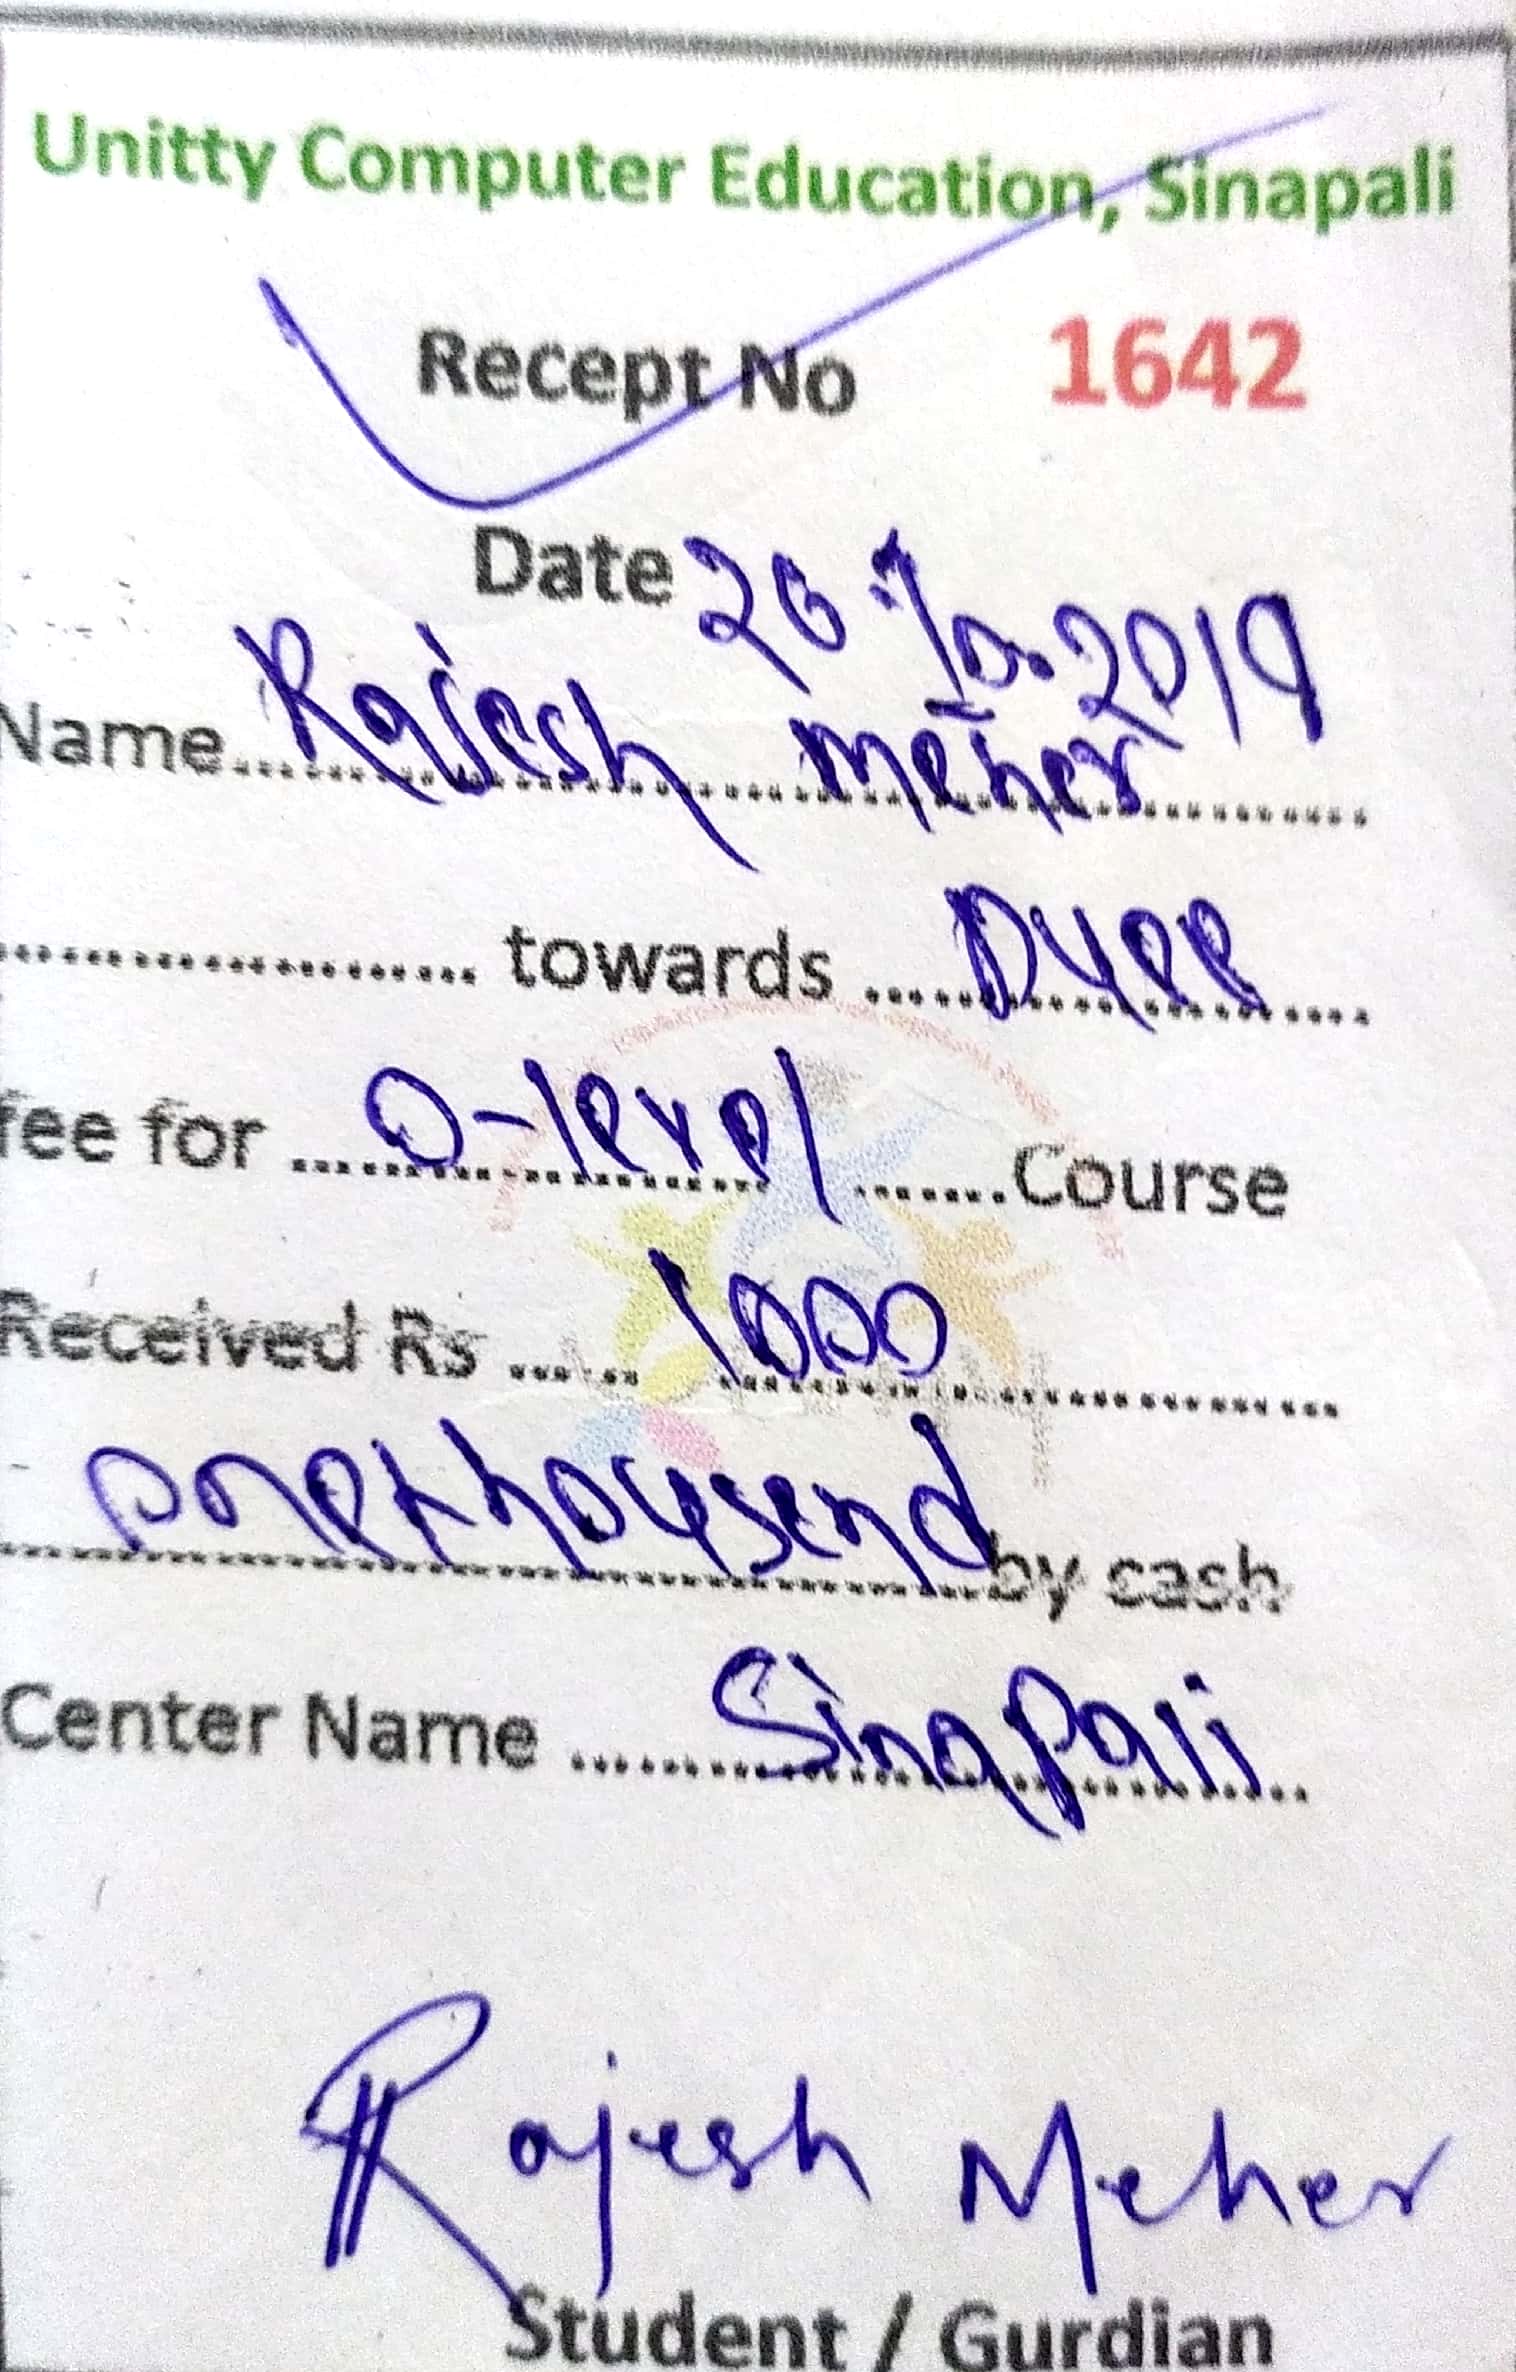 Unitty Computer Education, Sinapali
Recept No 1642
Date 26.10.2019
Name Rajesh meher
towards Dyee
fee for O-level Course
Received Rs 1000
onethousend by cash
Center Name Sinapali
Rajesh Meher
Student / Gurdian